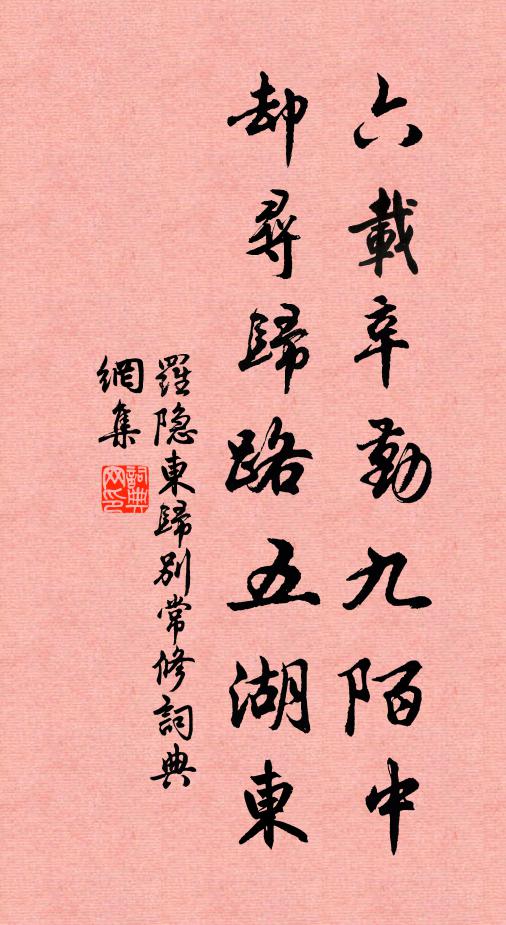 六載辛勤九陌中
却尋歸路五湖東
羅隐東歸別常修詞典
網集
詞典
网印